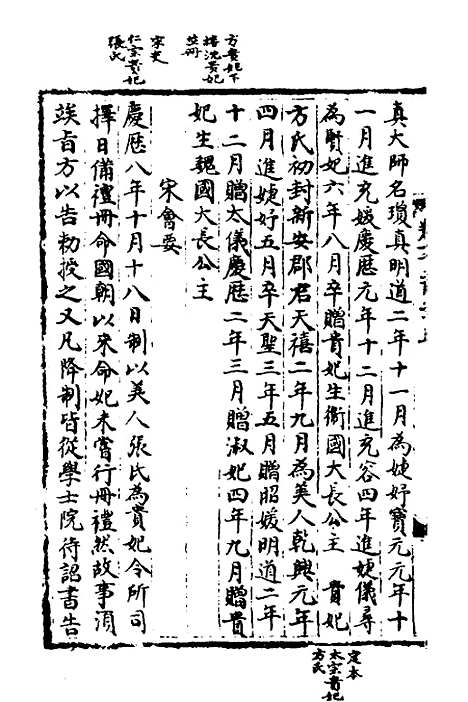 真大師名瓊真明道二年十一月為婕妤寶元元年十
一月進充媛慶厯元年十二月進充容四年進婕儀尋
為賢妃六年八月卒贈貴妃生衞國大長公主　貴妃
方氏初封新安郡君天禧二年九月為美人乾興元年
四月進婕妤五月卒天聖三年五月贈昭媛明道二年
十二月贈太儀慶厯二年三月贈淑妃四年九月贈貴
妃生魏國大長公主
宋會要
慶厯八年十月十八日制以美人張氏為貴妃令所司
擇日備禮冊命國朝以來命妃未嘗行冊禮然故事須
竢旨方以告勅授之又凡降制皆從學士院待詔書告
方貴妃下
接沈貴妃
並冊
宋史
仁宗貴妃
張氏
定本
太宗貴妃
方氏